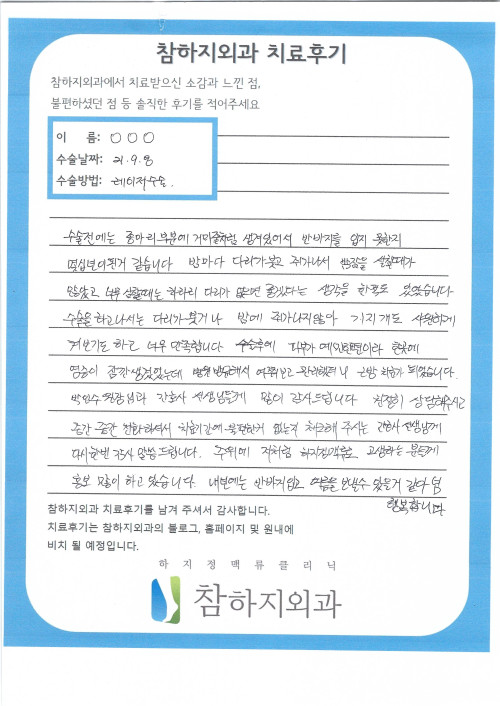 참하지외과 치료후기
참하지외과에서 치료받으신 소감과 느낀 점,
불편하셨던 점 등 솔직한 후기를 적어주세요
이 름: ○○○
수술날짜: 21.9.8
수술방법: 레이저수술.
수술전에는 종아리부분에 거미줄처럼 생겨있어서 반바지를 입지 못한지
몇십년이된거 같습니다 밤마다 다리가붓고 쥐가나서 잠을 설칠때가
많았고 너무 심할때는 차라리 다리가 없으면 좋겠다는 생각을 한적도 있었습니다
수술을 하고나서는 다리가붓거나 밤에 쥐가나지않아 기지개도 시원하게
켜보기도 하고 너무 만족합니다 수술후에 피부가 예민한편이라 한곳에
염증이 잠깐생겼었는데 병원방문해서 여쭤보고 관리했더니 금방 회복이 되었습니다.
박인수 원장님과 간호사 선생님들께 많이 감사드립니다 친절히 상담해주시고
중간 중간 전화하셔서 치료기간에 불편한거 없는지 체크해 주시는 간호사선생님께
다시한번 감사 말씀 드립니다. 주위에 저처럼 하지정맥류로 고생하는 분들께
홍보 많이 하고 있습니다. 내년에는 반바지입고 여름을 보낼수 있을거 같아 넘
행복합니다
참하지외과 치료후기를 남겨 주셔서 감사합니다.
치료후기는 참하지외과의 블로그, 홈페이지 및 원내에
비치 될 예정입니다.
하지정맥류클리닉
참하지외과